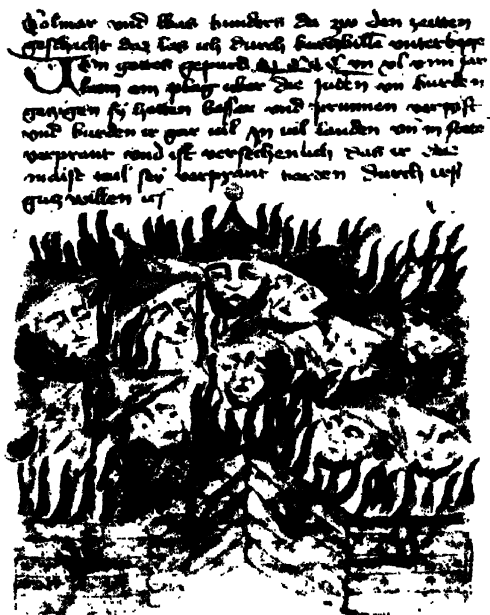 Colmar vnd was wunders da zw den zeitten
geschicht das las ich durch kurcz willn vnterwege
In gottes gepurd jar
kam ain plag vber die Juden vnd wurden
gezigen sy hetten vnd prunnen vergift
vnd wurden ir gar vil In vil landen vnd in stete
verprant vnd ist versechenlich das ir die
maist tail sey verprant worden durch irss
gutz willen